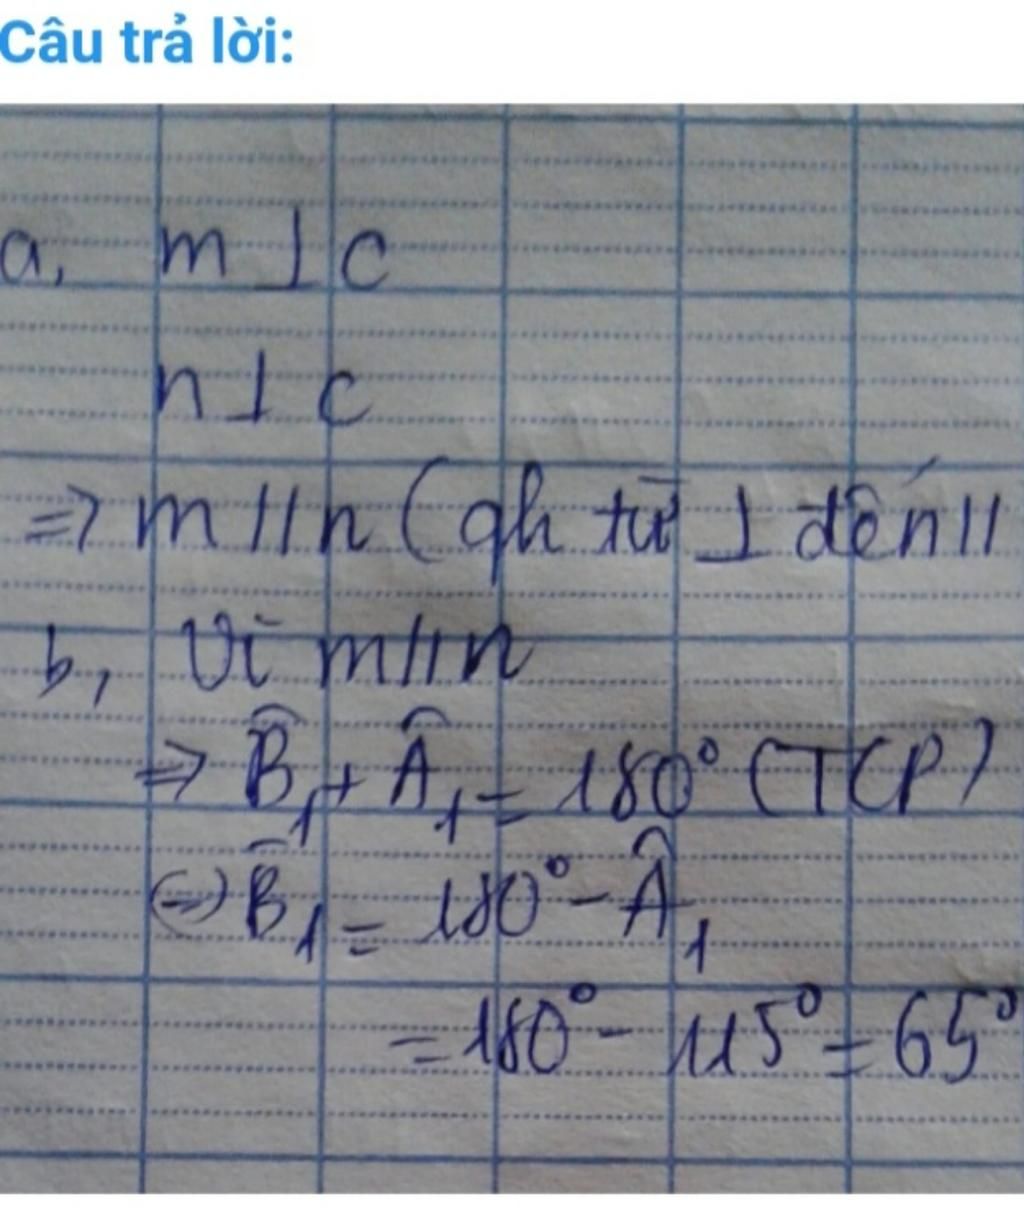 Câu trả lời:
a, m ⊥ c
n ⊥ c
=> m // n (qh từ ⊥ đến //
b, Vì m // n
=> B̂₁ + Â₁ = 180° (TCP)
(=) B̂₁ = 180° - Â₁
= 180° - 115° = 65°